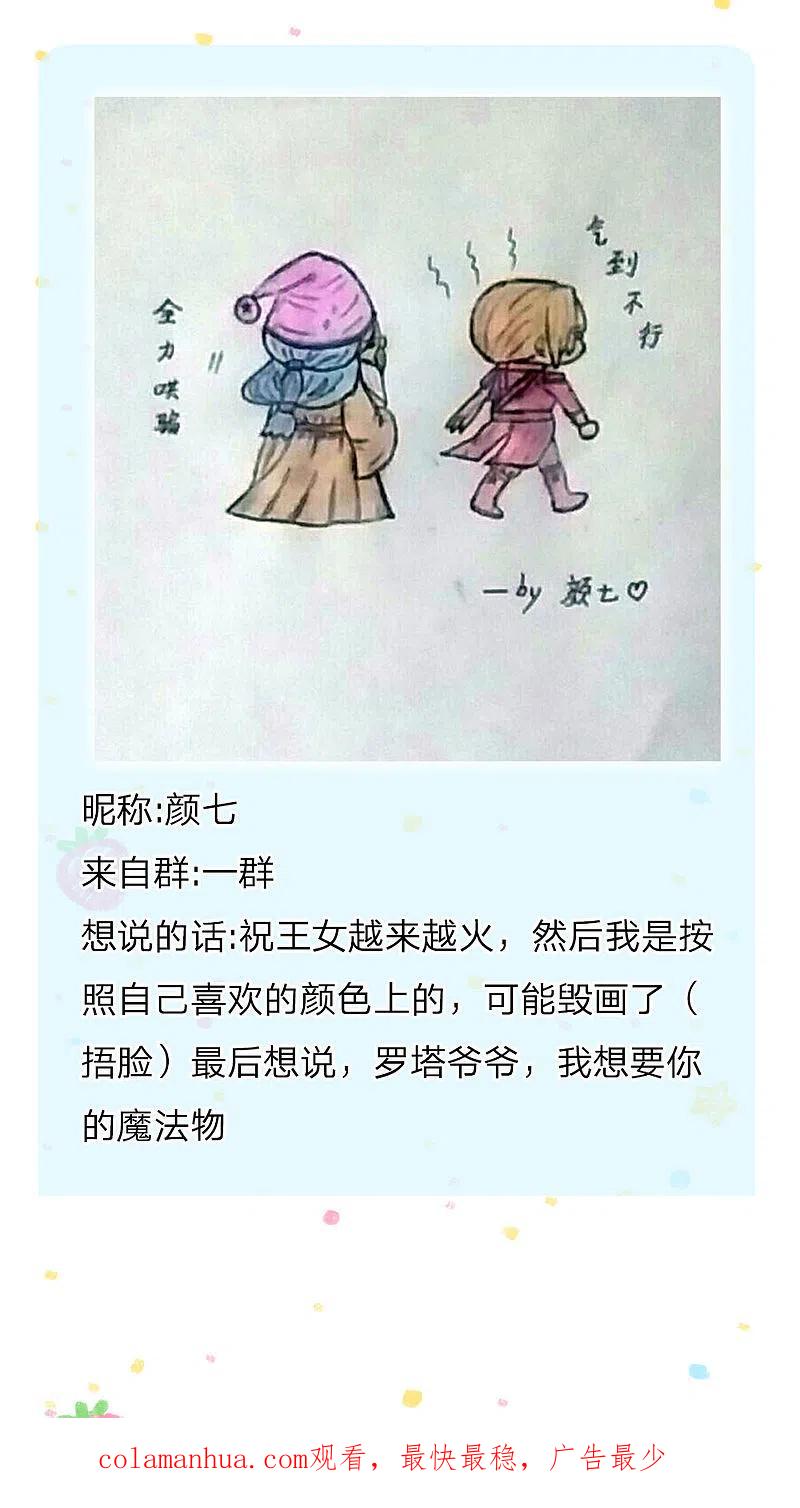 气到不行
全力哄骗
—by 颜七♡
昵称:颜七
来自群:一群
想说的话:祝王女越来越火，然后我是按
照自己喜欢的颜色上的，可能毁画了（
捂脸）最后想说，罗塔爷爷，我想要你
的魔法物
colamanhua.com观看，最快最稳，广告最少